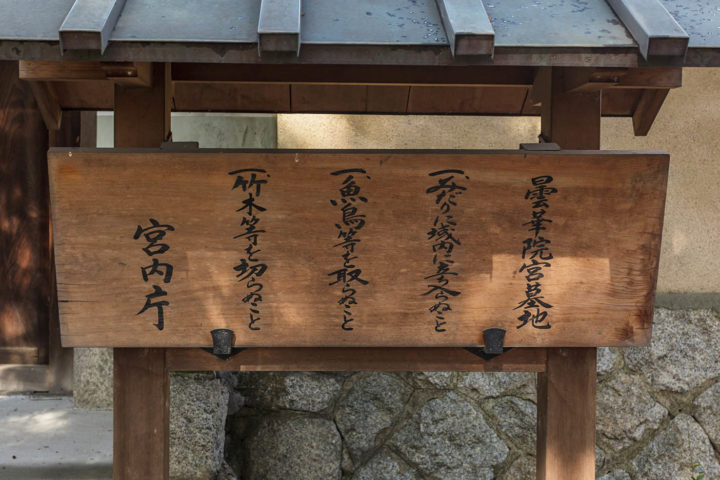 曇華院宮墓地
一、みだりに域内に立入らぬこと
一、魚鳥等を取らぬこと
一、竹木等を切らぬこと
宮内庁